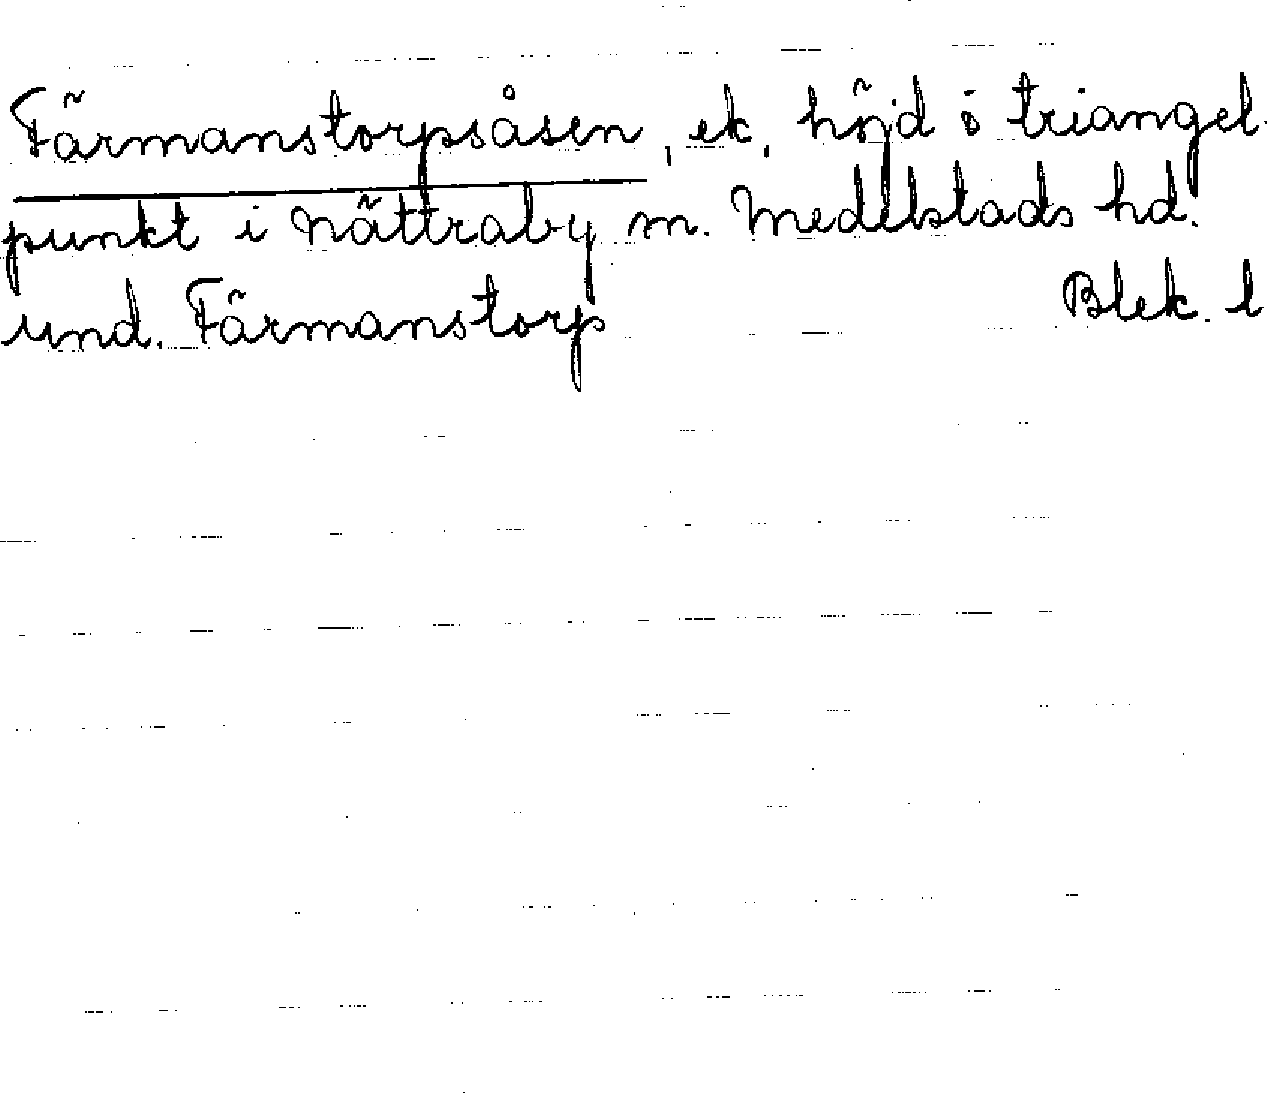 Färmanstorpsåsen, ek, höjd o triangel
punkt i Nättraby m. Medelstads hd.
und. Färmanstorp Blek. l